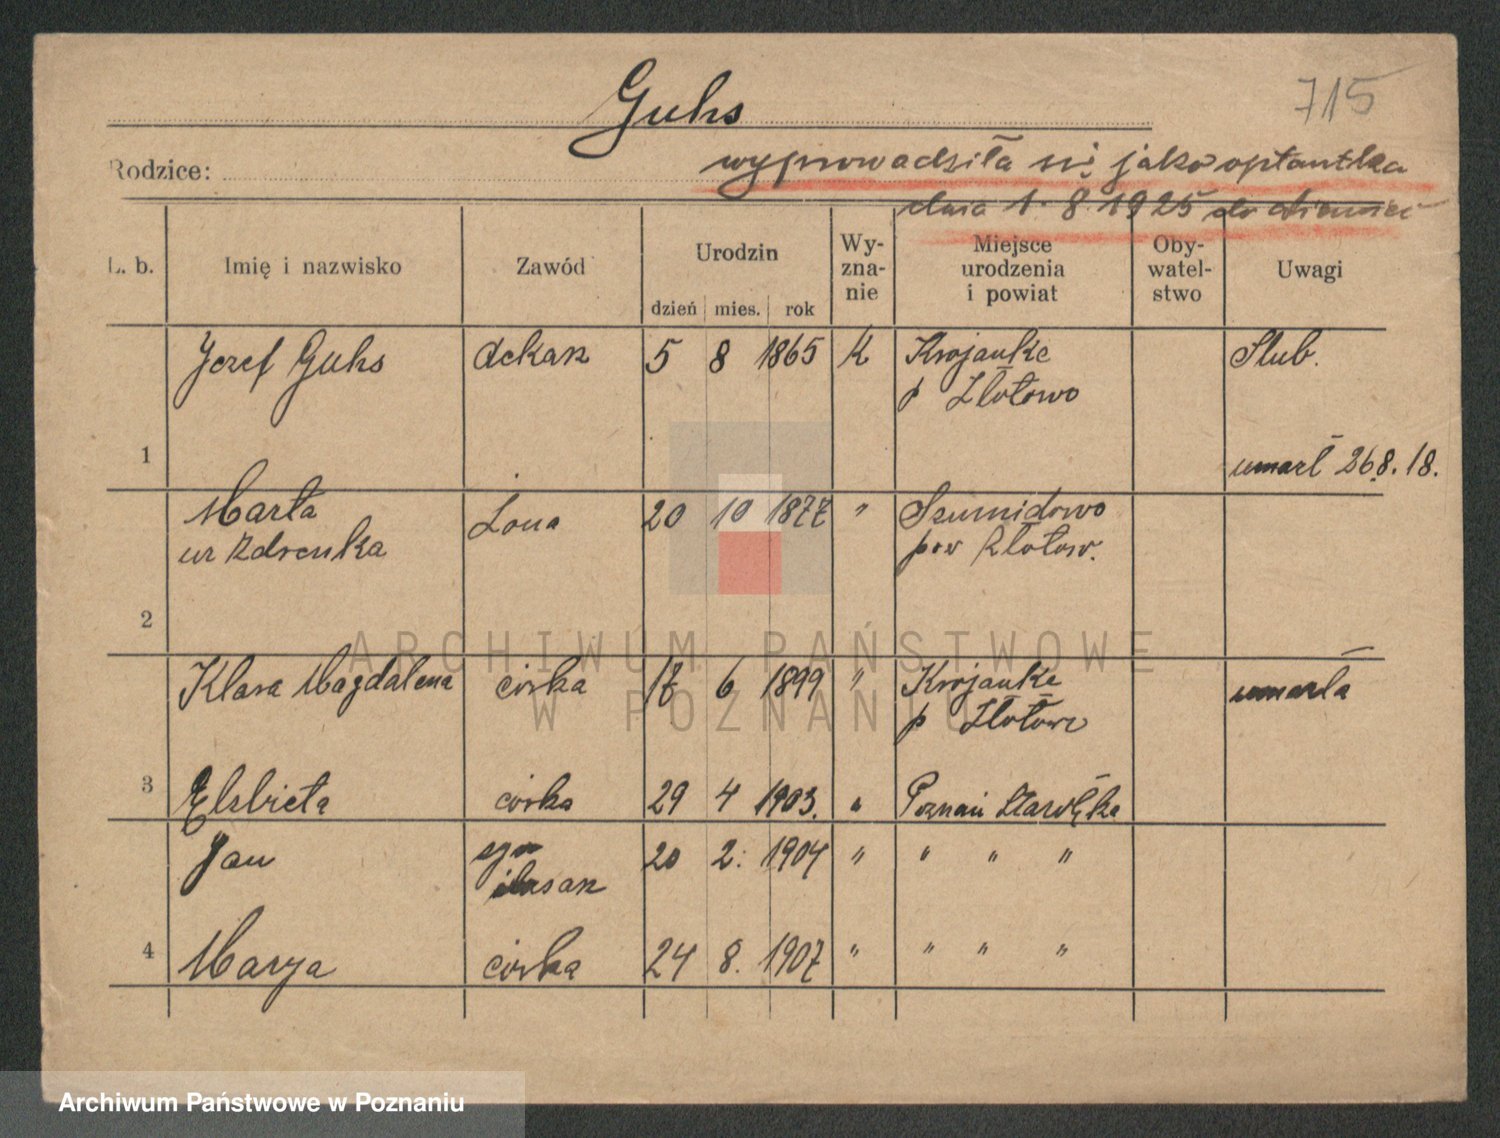 Guhs
715
Rodzice:
wyprowadziła się jako optantka
dnia 1. 8. 1925 do Niemiec
L. b. Imię i nazwisko Zawód Urodzin Wy-zna-nie Miejsce urodzenia i powiat Oby-watel-stwo Uwagi
dzień mies. rok
Jozef Guhs dekarz 5 8 1865 K Krojanke Slub.
p Złotowo
1 umarł 26.8.18.
Marta żona 20 10 1877 " Szumidowo
ur Zdrenka pow Złotow.
2
Klara Magdalena córka 17 6 1899 " Krojanke umarła
p Złotowo
3 Elzbieta córka 29 4 1903. " Poznań Starołęka
Jan syn 20 2. 1904 " " " "
4 Marya córka 24 8. 1907 " " " "
ARCHIWUM PAŃSTWOWE
W POZNANIU
Archiwum Państwowe w Poznaniu